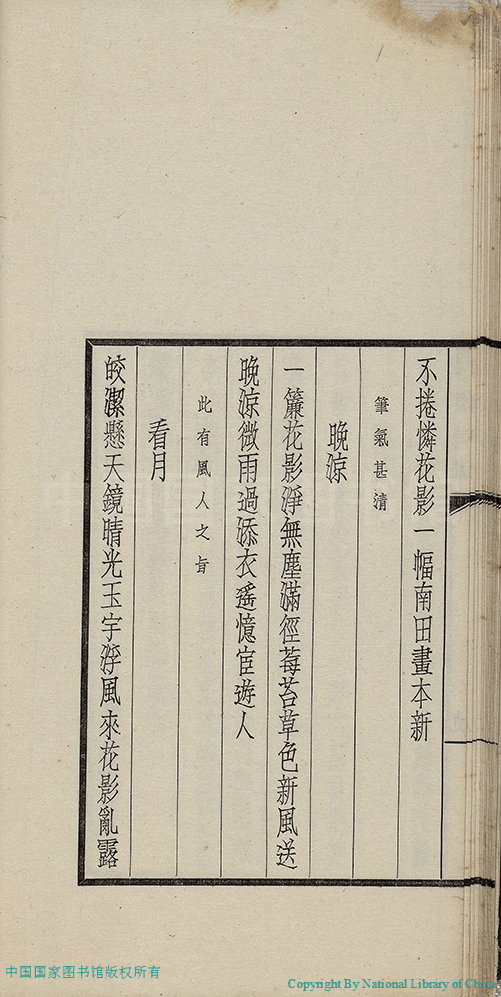 不捲憐花影一幅南田畫本新
筆氣甚清
晚涼
一簾花影淨無塵滿徑莓苔草色新風送
晚涼微雨過添衣遙憶宦遊人
此有風人之旨
看月
皎潔懸天鏡晴光玉宇浮風來花影亂露
中国国家图书馆版权所有
Copyright By National Library of China